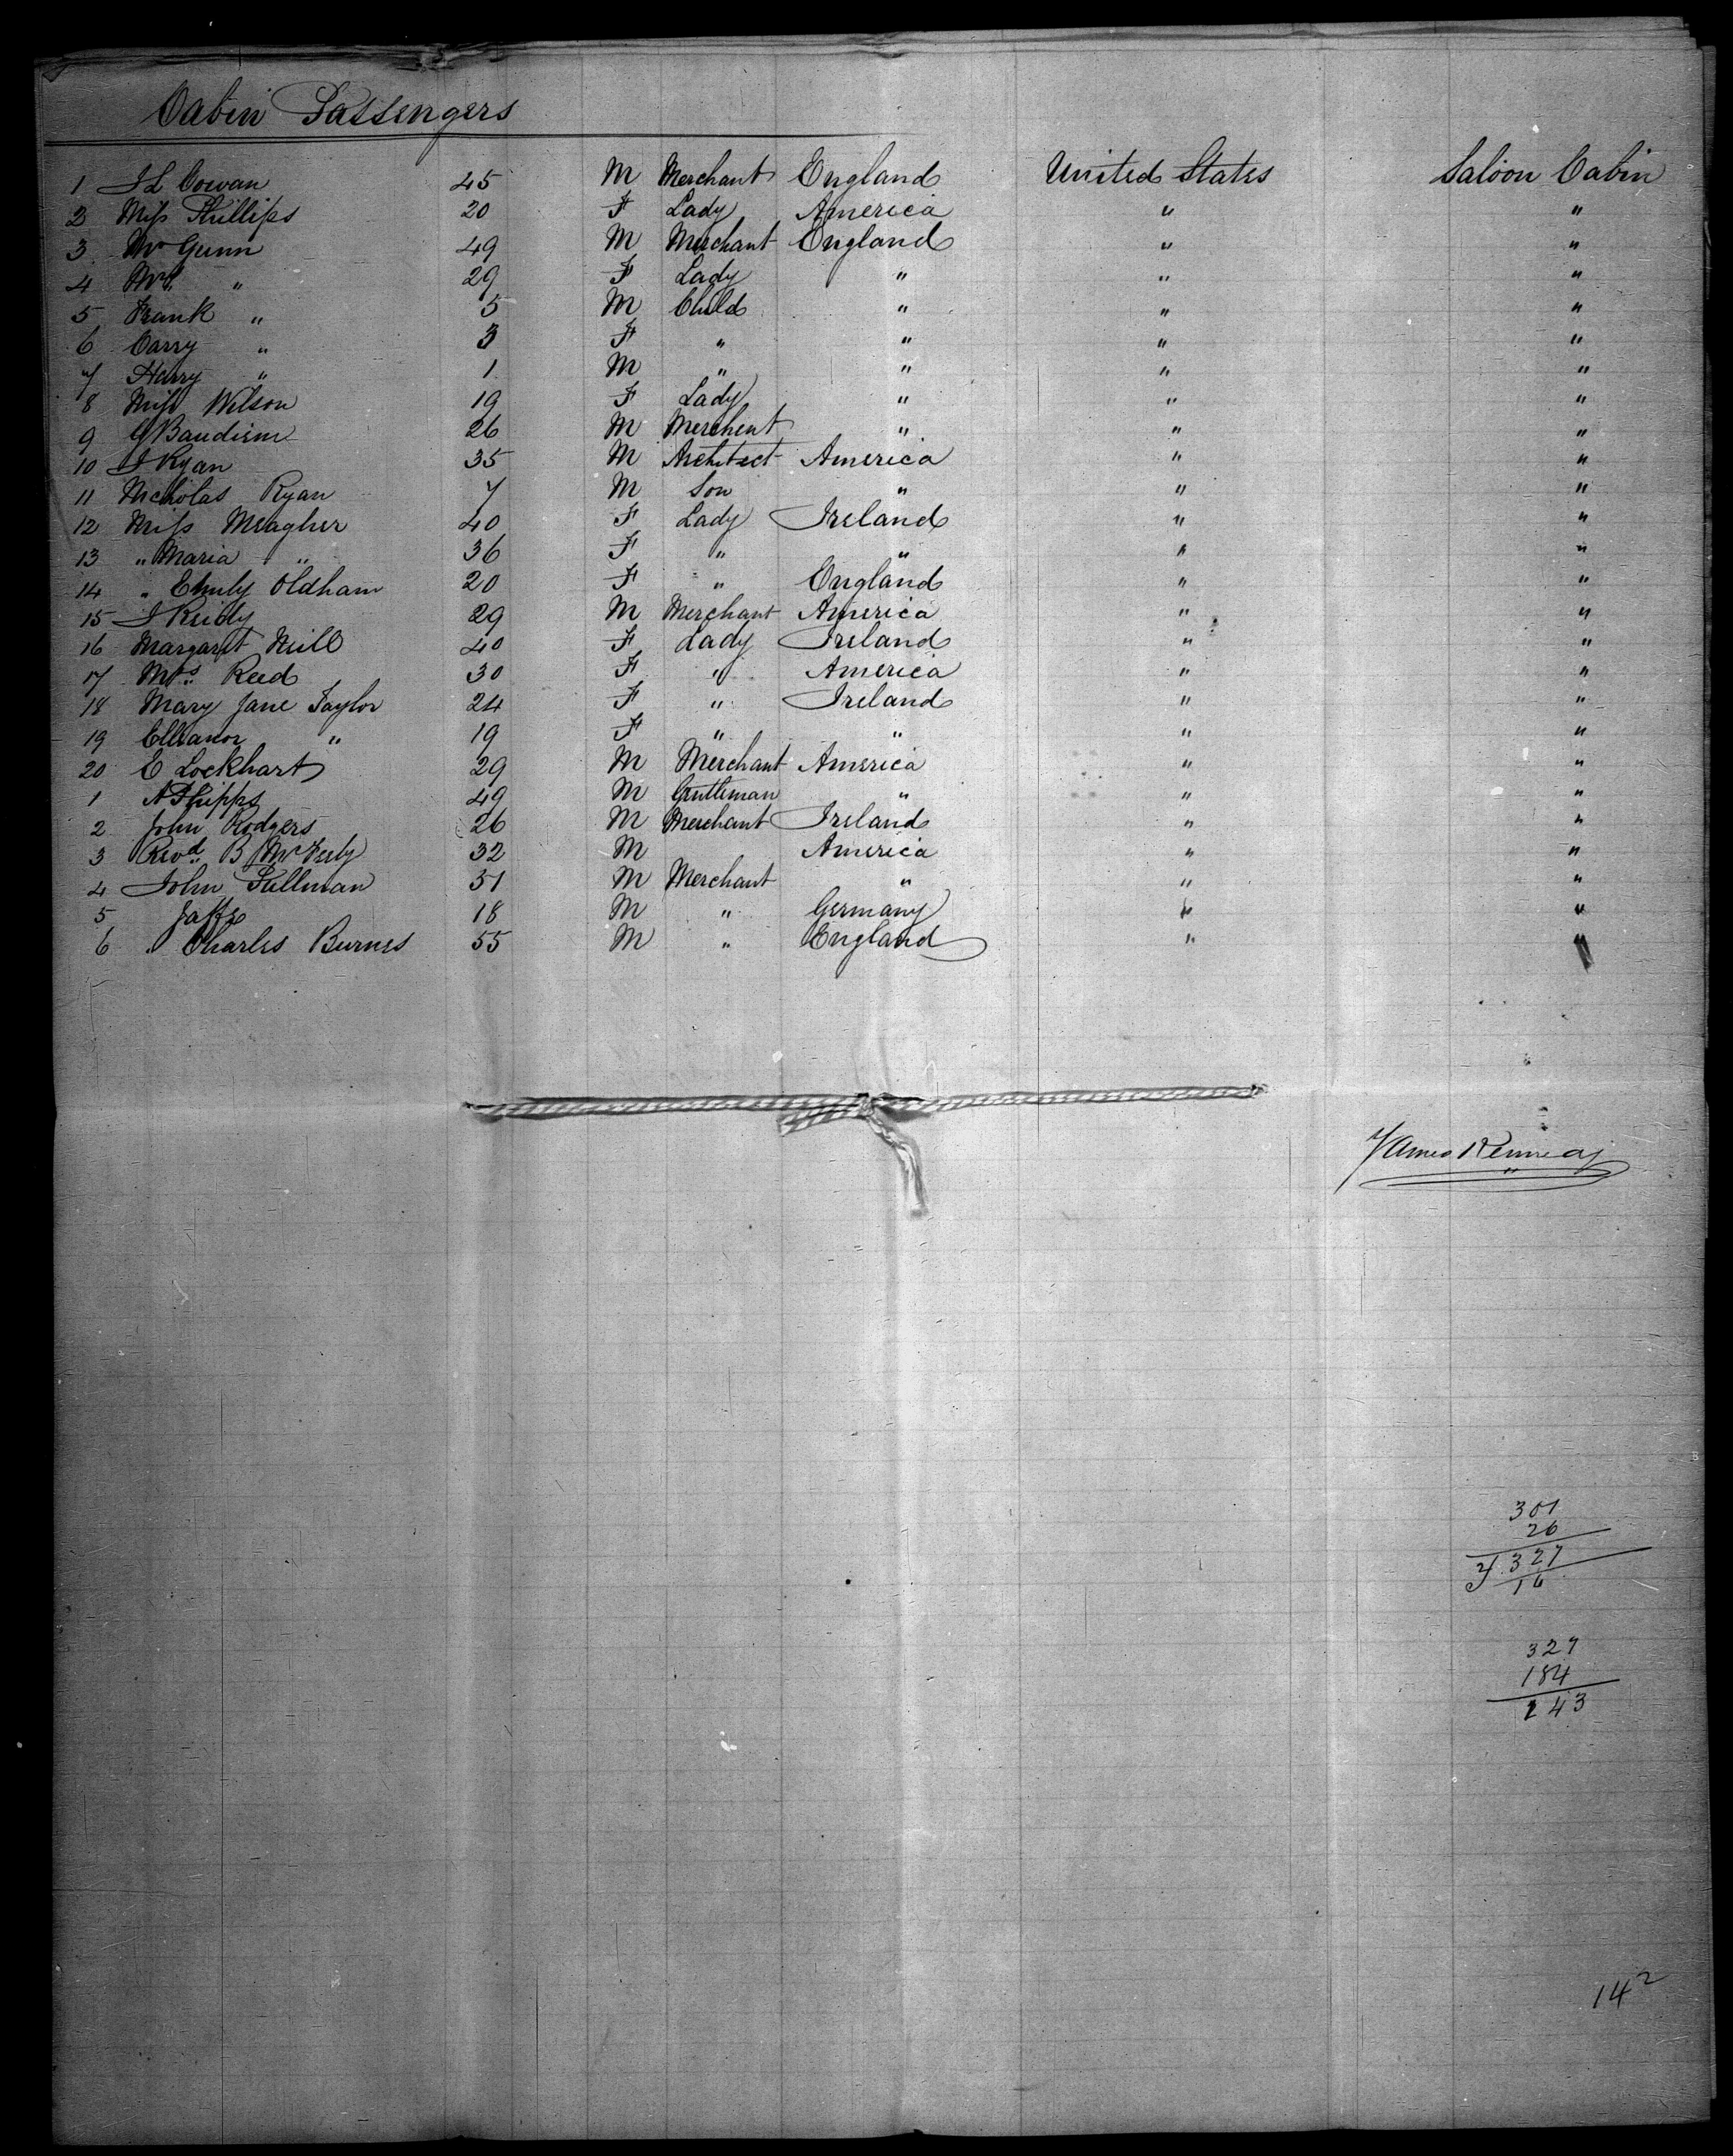 Cabin Passengers
1 J L Cowan 45 M Merchant England United States Saloon Cabin
2 Miss Phillips 20 F Lady America " "
3 Mr Gunn 49 M Merchant England " "
4 Mrs " 29 F Lady " " "
5 Frank " 5 M Child " " "
6 Carry " 3 F " " " "
7 Harry " 1 M " " " "
8 Miss Wilson 19 F Lady " " "
9 G 26 M Merchent " " "
10 J Ryan 35 M Architect America " "
11 Nicholas Ryan 7 M Son " " "
12 Miss Meagher 40 F Lady Ireland " "
13 " Maria " 36 F " " " "
14 " Emily Oldham 20 F " England " "
15 J Reidy 29 M Merchant America " "
16 Margaret Neill 40 F Lady Ireland " "
17 Mrs. Reed 30 F " America " "
18 Mary Jane Taylor 24 F " Ireland " "
19 Elleanor " 19 F " " " "
20 E Lockhart 29 M Merchant America " "
1 A Phipps 49 M Gentleman " " "
2 John Rodgers 26 M Merchant Ireland " "
3 Revd. B McFeely 32 M America " "
4 John Pullman 31 M Merchant " " "
5 Jaffe 18 M " Germany " "
6 " Charles Burnes 55 M " England " "
James Kennedy
301
26
327
16
327
184
143
142